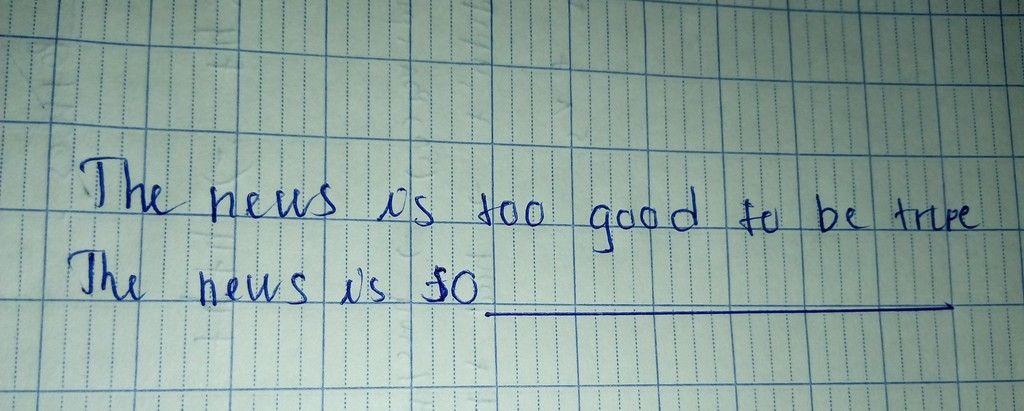 The news is too good to be true
The news is so